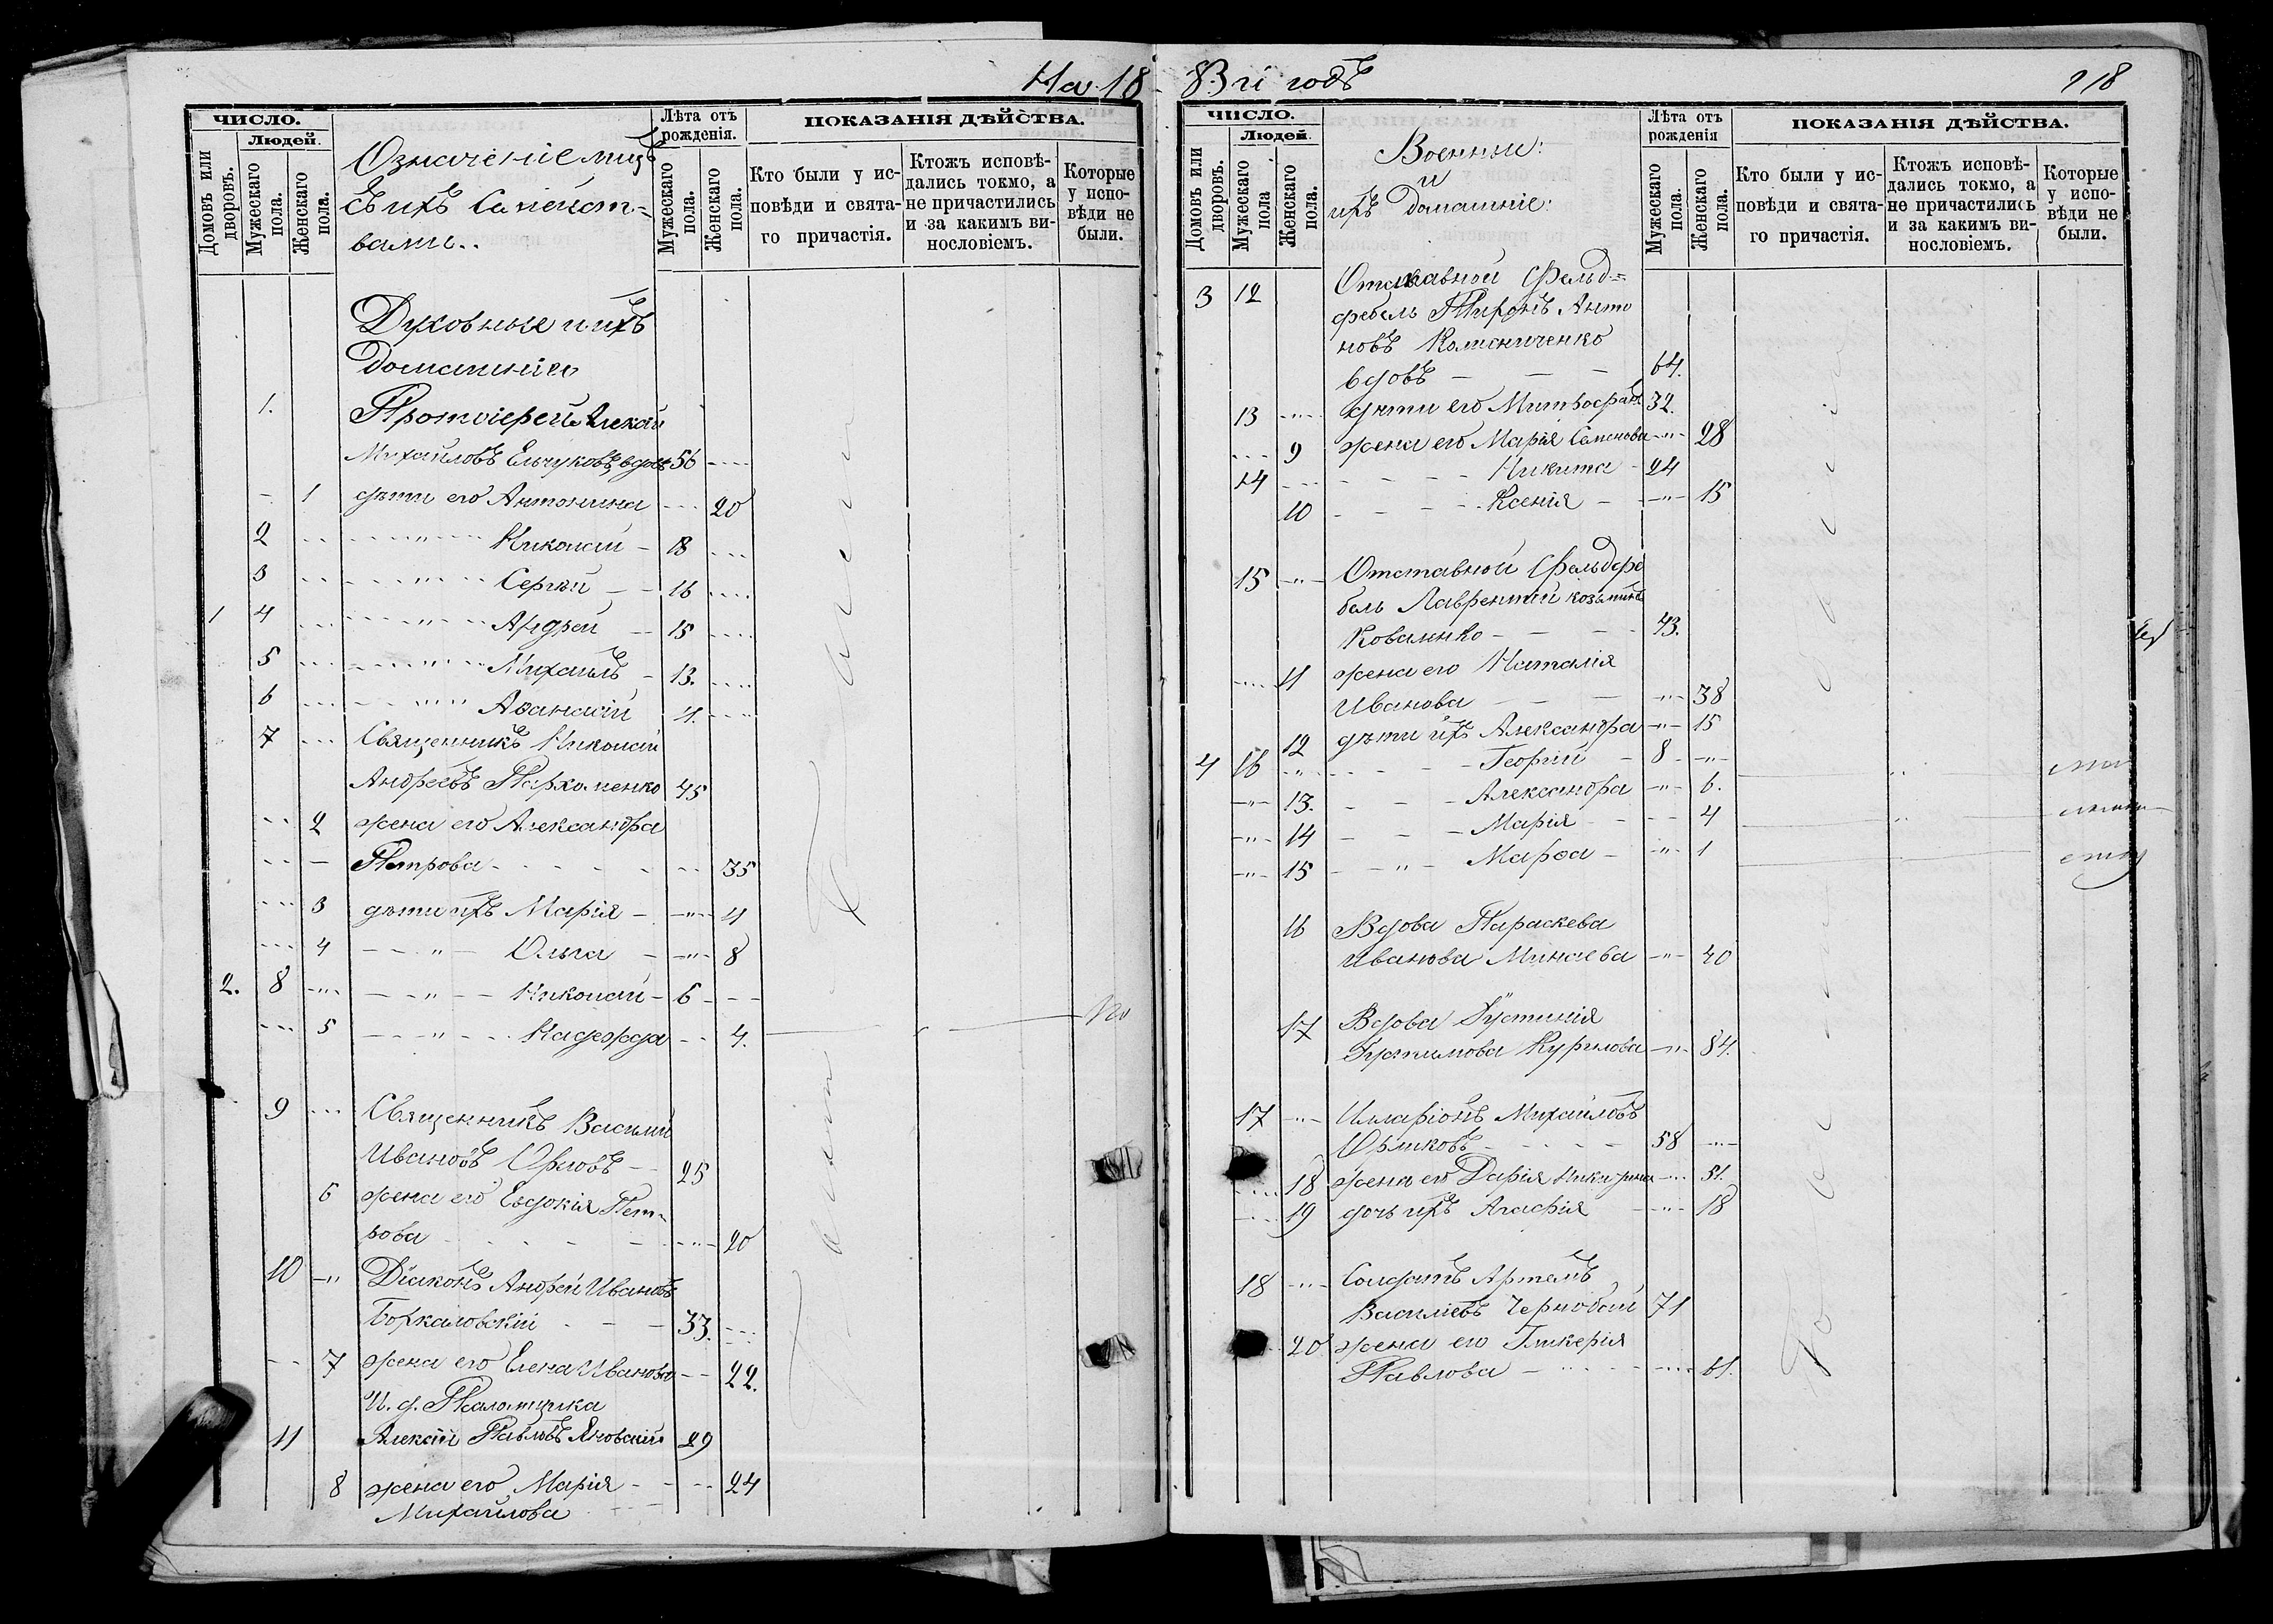 На 18
ЧИСЛО.
Людей.
Домовъ или дворовъ.
Мужескаго пола.
Женскаго пола.
Означеніе лицъ
съ ихъ Семейст=
вами..
Лѣта отъ рожденія.
Мужескаго пола.
Женскаго пола.
ПОКАЗАНІЯ ДѢЙСТВА.
Кто были у ис-
повѣди и свята-
го причастія.
Ктожъ исповѣ-
дались токмо, а
не причастились
и за какимъ ви-
нословіемъ.
Которые
у испо-
вѣди не
были.
Духовные и ихъ
домашніе
1. Протоіерей Алексѣй
Михайловъ вдовъ 56
1 дѣти его Антонина 20
2 Николай 18
3 Сергѣй 16
1 4 Андрей 15
5 Михаилъ 13.
6 Аѳанасій
7 Священникъ Николай
Андреевъ Пархоменко 45
2 жена его Александра
Петрова 35
3 дѣти ихъ Марія 11
4 Ольга 8
2. 8 Николай 6
5 Надежда 4.
9 Священникъ Василій
Ивановъ Орловъ 25
6 жена его Евдокія Пет-
рова 20
10 Діаконъ Андрей Ивановъ
33.
7 жена его Елена Иванова 22.
И. д. Псаломщика
11 Алексѣй Павловъ Яновскій 29
8 жена его Марія 24
Михайлова
83 й годъ
218
ЧИСЛО.
Людей.
Домовъ или дворовъ.
Мужескаго пола
Женскаго пола.
Военные:
и
ихъ домашніе:
Лѣта отъ рожденія
Мужескаго пола.
Женскаго пола.
ПОКАЗАНІЯ ДѢЙСТВА.
Кто были у ис-
повѣди и свята-
го причастія.
Ктожъ исповѣ-
дались токмо, а
не причастились
и за какимъ ви-
нословіемъ.
Которые
у испо-
вѣди не
были.
3 12 Отставной Фельд=
фебель Анто
новъ Колисниченко
вдовъ 64.
13 дѣти его Митрофанъ 32.
9 жена его Марія Семенова 28
14 Никита 24
10 Ксенія 15
15 Отставной Фельдфе
бель Лаврентій Козьминъ
Коваленко 43.
11 жена его Наталія
Иванова 38
12 дѣти ихъ Александра 15
4 16 Георгій 8
13. Александра 6.
14 Марія 4
15 Марѳа 1
16 Вдова Параскева
Иванова Минаева 40
17 Вдова Іустинія
Курилова 84.
17 Илларіонъ Михайловъ
58
18 жена его Дарія 51.
19 дочь ихъ Агафія 18
18 Солдатъ Артемъ
Василіевъ Чернобай 71
20 жена его Гликерія
Павлова 61.